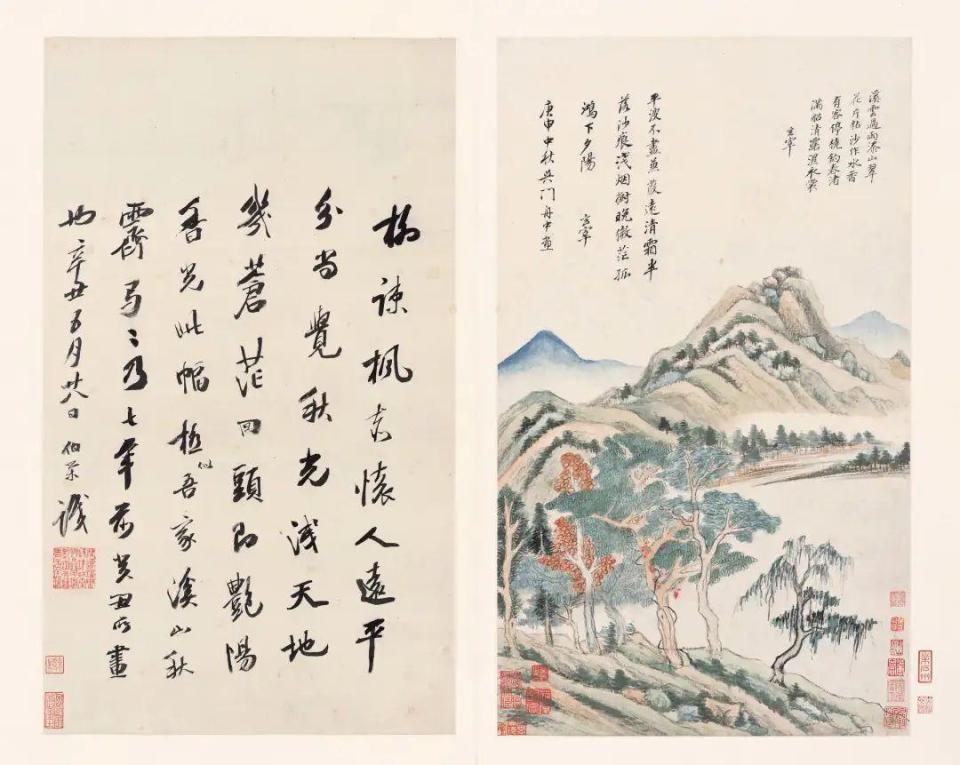 溪雲過雨添山翠
花片粘沙作水香
有客停橈釣春渚
滿船清露濕衣裳
玄宰
平波不盡蒹葭遠清霜半
落沙痕淺烟樹晚微茫孤
鴻下夕陽
玄宰
庚申中秋吳門舟中畫
柳疎楓赤懷人遠平
分尚覺秋光淺天地
幾蒼茫回頭即艷陽
香光此幅極似吾家溪山秋
霽弓〻乃七年前癸丑所畫
也辛丑五月廿八日伯荣識